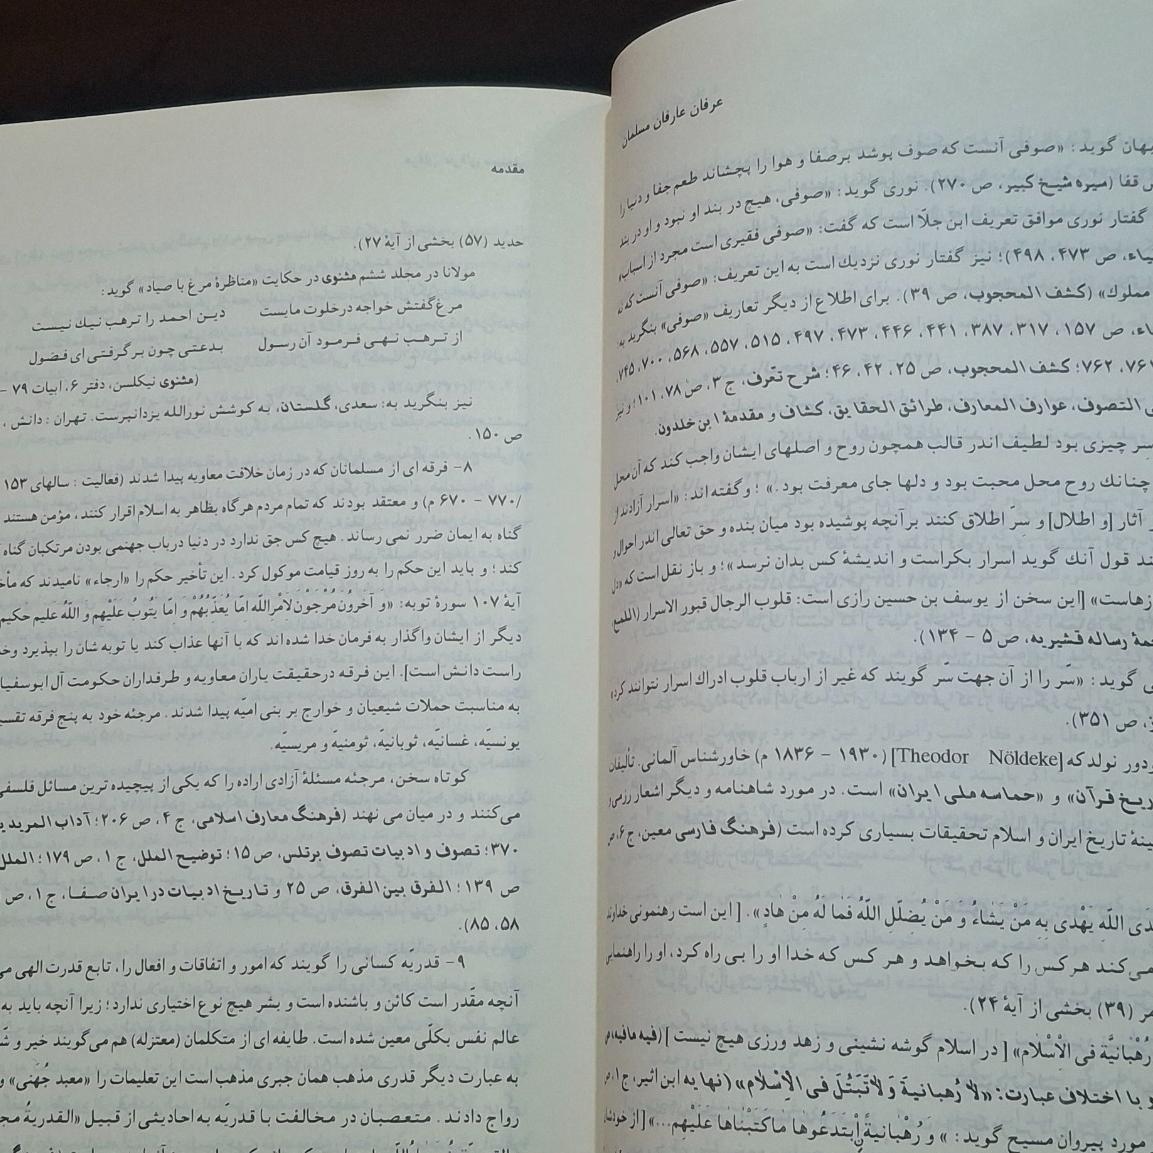 عرفان عارفان مسلمان
گوید: «صوفی آنست که صوف پوشد برصفا و هوا را بچشاند طعم جفا و دنیا را
قفا (سیره شیخ کبیر، ص ۲۷۰). نوری گوید: «صوفی، هیچ در بند او نبود و او در بند
گفتار نوری موافق تعریف ابن جلّا است که گفت: «صوفی فقیری است مجرد از اسباب»
ص ۴۷۳، ۴۹۸)؛ نیز گفتار نوری نزدیك است به این تعریف: «صوفی آنست که نه
مملوك» (کشف المحجوب، ص ۳۹). برای اطلاع از دیگر تعاریف «صوفی» بنگرید به:
ص ۱۵۷، ۳۱۷، ۳۸۷، ۴۴۱، ۴۴۶، ۴۷۳، ۴۹۷، ۵۱۵، ۵۵۷، ۵۶۸، ۷۰۰، ۷۴۵،
۷۶۲؛ کشف المحجوب، ص ۲۵، ۴۲، ۴۶؛ شرح تعّرف، ج ۳، ص ۷۸، ۱۰۱؛ و نیز
التصوف، عوارف المعارف، طرائق الحقایق، کشاف و مقدمهٔ ابن خلدون.
چیزی بود لطیف اندر قالب همچون روح و اصلهای ایشان واجب کند که آن محل
چنانك روح محل محبت بود و دلها جای معرفت بود.» ؛ و گفته اند: «اسرار آزادند از
آثار [و اطلال] و سرّ اطلاق کنند برآنچه پوشیده بود میان بنده و حق تعالی اندر احوال و
قول آنك گوید اسرار بکراست و اندیشهٔ کس بدان نرسد»؛ و باز نقل است که «دل
[این سخن از یوسف بن حسین رازی است: قلوب الرجال قبور الاسرار (اللمع
رساله قشیریه، ص ۵ - ۱۳۴).
گوید: «سّر را از آن جهت سّر گویند که غیر از ارباب قلوب ادراك اسرار نتوانند کرد»
ص ۳۵۱).
نولدکه [Theodor Nöldeke] (۱۹۳۰ - ۱۸۳۶ م) خاورشناس آلمانی. تألیفات
قرآن» و «حماسه ملی ایران» است. در مورد شاهنامه و دیگر اشعار رزمی و
تاریخ ایران و اسلام تحقیقات بسیاری کرده است (فرهنگ فارسی معین، ج ۶، ص
اللّهِ یَهْدی بِهِ مَنْ یَشاءُ وَ مَنْ یُضلَلِ اللّهُ فَما لَهُ مِنْ هادٍ». [این است رهنمونی خداوند
می کند هر کس را که بخواهد و هر کس که خدا او را بی راه کرد، او را راهنمایی
(۳۹) بخشی از آیهٔ ۲۴).
فی الْاِسْلام» [در اسلام گوشه نشینی و زهد ورزی هیچ نیست] (فیه مافیه، ص
و با اختلاف عبارت: «لاٰ رُهبانیةَ وَلاٰتَبَتُّلَ فی الْاِسْلام» (نهایه ابن اثیر، ج ۱، ص
مورد پیروان مسیح گوید: «وَ رُهْبانیةً اِبْتَدعُوها ماکَتَبْناها عَلَیْهِم...» [از خودشان
مقدمه
حدید (۵۷) بخشی از آیهٔ ۲۷).
مولانا در مجلد ششم مثنوی در حکایت «مناظرهٔ مرغ با صیاد» گوید:
مرغ گفتش خواجه درخلوت مایست دیـن احمد را ترهب نیك نیست
از ترهب نـهـی فـرمـود آن رسـول بـدعتی چون برگرفتـی ای فضـول
(مثنوی نیکلسن، دفتر ۶، ابیات ۷۹ -
نیز بنگرید به: سعدی، گلستان، به کوشش نورالله یزدانپرست. تهران: دانش،
ص ۱۵۰.
۸- فرقه ای از مسلمانان که در زمان خلافت معاویه پیدا شدند (فعالیت: سالهای ۱۵۳
/۷۷۰ - ۶۷۰ م) و معتقد بودند که تمام مردم هرگاه بظاهر به اسلام اقرار کنند، مؤمن هستند
گناه به ایمان ضرر نمی رساند. هیچ کس حق ندارد در دنیا درباب جهنمی بودن مرتکبان گناه
کند؛ و باید این حکم را به روز قیامت موکول کرد. این تأخیر حکم را «ارجاء» نامیدند که
آیهٔ ۱۰۷ سورهٔ توبه: «وَ آخَرُونَ مُرْجَوْنَ لاَمْرِاللّه اِمّا یُعَذِّبُهُمْ وَ اِمّا یَتُوبُ عَلَیْهِم وَ اللّهُ علیم حکیم
دیگر از ایشان واگذار به فرمان خدا شده اند که با آنها عذاب کند یا توبه شان را بپذیرد
راست دانش است]. این فرقه درحقیقت یاران معاویه و طرفداران حکومت آل ابوسفیا
به مناسبت حملات شیعیان و خوارج بر بنی امیّه پیدا شدند. مرجئه خود به پنج فرقه تقسیـ
یونسیّه، غسانیّه، ثوبانیّه، ثومنیّه و مریسیّه.
کوتاه سخن، مرجئه مسئلهٔ آزادی اراده را که یکی از پیچیده ترین مسائل فلسفی
می کنند و در میان می نهند (فرهنگ معارف اسلامی، ج ۴، ص ۲۰۶؛ آداب المریدین
۳۷۰؛ تصوف و ادبیات تصوف برتلس، ص ۱۵؛ توضیح الملل، ج ۱، ص ۱۷۹؛ الملل
ص ۱۳۹؛ الفرق بین الفرق، ص ۲۵ و تاریخ ادبیات در ایران صفـا، ج ۱، ص
۵۸، ۸۵).
۹- قدریّه کسانی را گویند که امور و اتفاقات و افعال را، تابع قدرت الهی
آنچه مقّدر است کائن و باشنده است و بشر هیچ نوع اختیاری ندارد؛ زیرا آنچه باید به
عالم نفس بکلّی معین شده است. طایفه ای از متکلمان (معتزله) هم می گویند خیر و
به عبارت دیگر قدری مذهب همان جبری مذهب است این تعلیمات را «معبد جُهَنی» و
رواج دادند. متعصبان در مخالفت با قدریّه به احادیثی از قبیل «القدریةُ